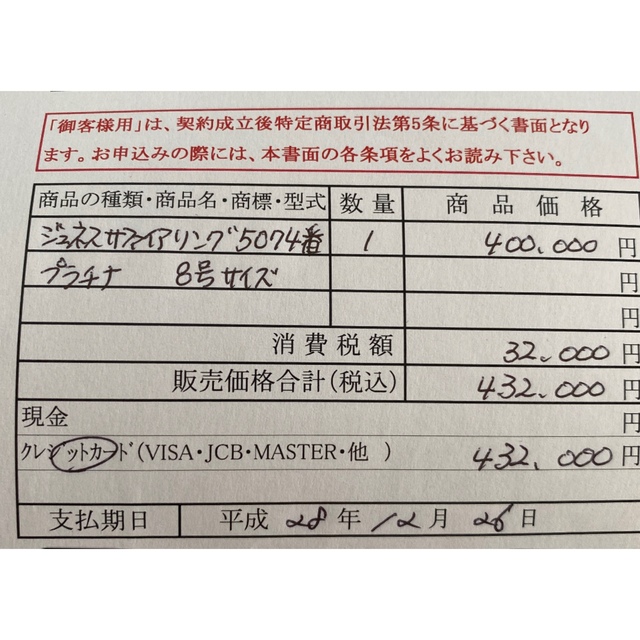 「御客様用」は、契約成立後特定商取引法第5条に基づく書面となり
ます。お申込みの際には、本書面の各条項をよくお読み下さい。
商品の種類・商品名・商標・型式 数量 商品価格
ジュネスサファイアリング5074番 1 400,000円
プラチナ 8号サイズ 円
円
消費税額 32,000円
販売価格合計(税込) 432,000円
現金 円
クレジットカード(VISA・JCB・MASTER・他 ) 432,000円
支払期日 平成28年12月26日